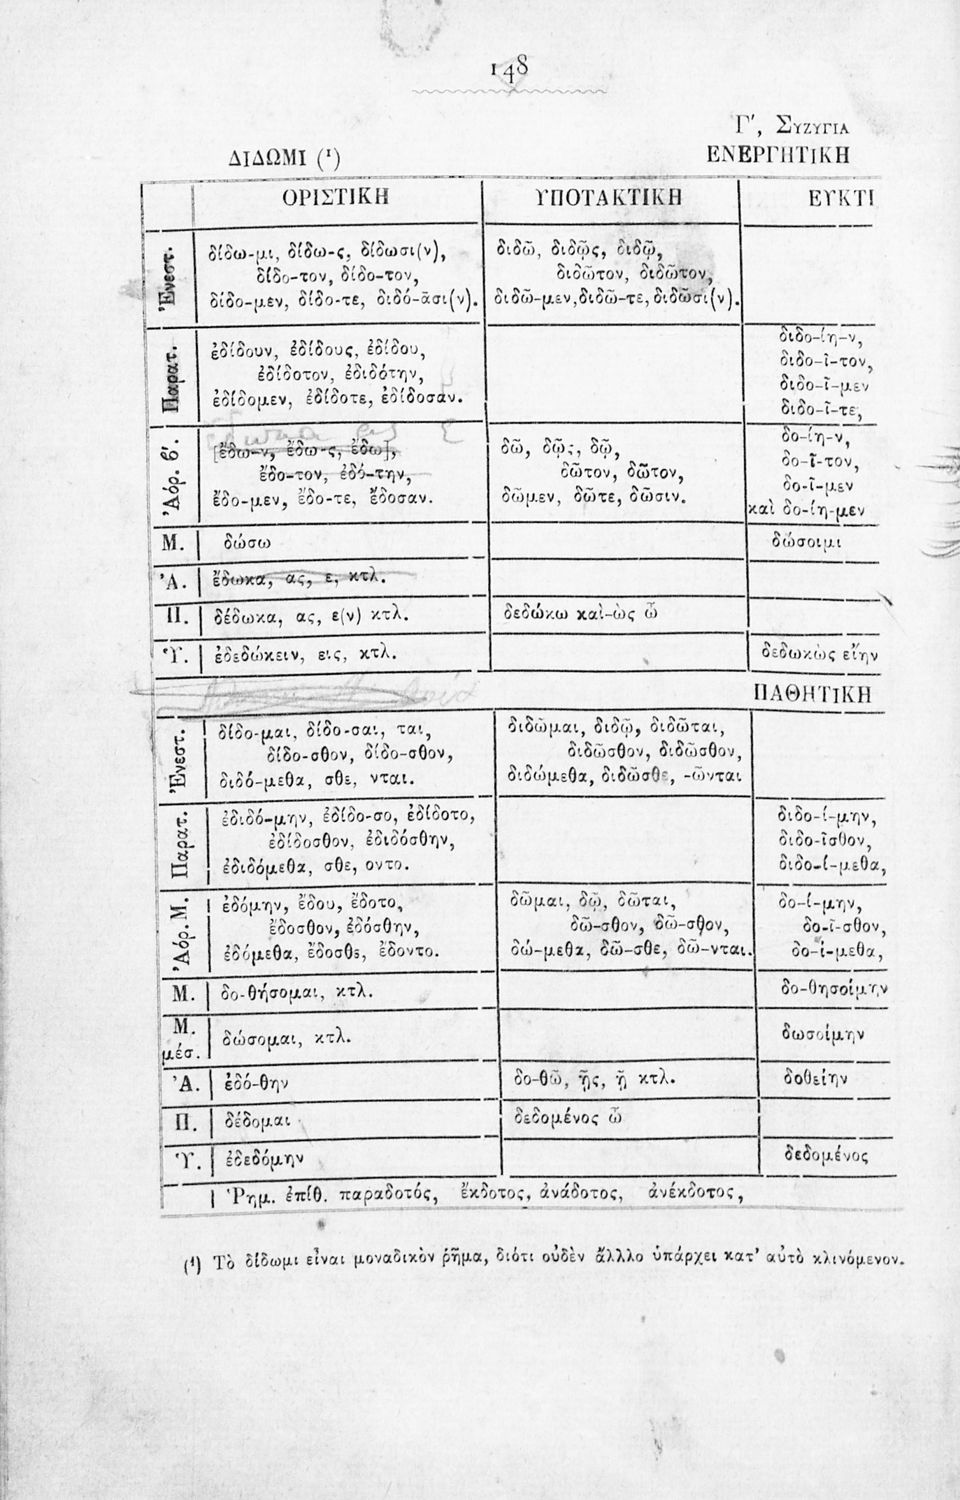 148
Γ΄, Συζυγια
ΔΙΔΩΜΙ (¹) ΕΝΕΡΓΗΤΙΚΗ
ΟΡΙΣΤΙΚΗ ΥΠΟΤΑΚΤΙΚΗ ΕΥΚΤΙ
Ἐνεστ.
δίδω-μι, δίδω-ς, δίδωσι(ν),
δίδο-τον, δίδο-τον,
δίδο-μεν, δίδο-τε, διδό-ᾶσι(ν).
διδῶ, διδῷς, διδῷ,
διδῶτον, διδῶτον,
διδῶ-μεν, διδῶ-τε, διδῶσι(ν).
Παρατ.
ἐδίδουν, ἐδίδους, ἐδίδου,
ἐδίδοτον, ἐδιδότην,
ἐδίδομεν, ἐδίδοτε, ἐδίδοσαν.
διδο-ίη-ν,
διδο-ῖ-τον,
διδο-ῖ-μεν
διδο-ῖ-τε,
Ἀόρ. β'.
[ἔδω-ν, ἔδω-ς, ἔδω],
ἔδο-τον, ἐδό-την,
ἔδο-μεν, ἔδο-τε, ἔδοσαν.
δῶ, δῷς, δῷ,
δῶτον, δῶτον,
δῶμεν, δῶτε, δῶσιν.
δο-ίη-ν,
δο-ῖ-τον,
δο-ῖ-μεν
καὶ δο-ίη-μεν
Μ. δώσω δώσοιμι
Ἀ. ἔδωκα, ας, ε, κτλ.
Π. δέδωκα, ας, ε(ν) κτλ. δεδώκω καὶ-ὼς ὦ
Ὑ. ἐδεδώκειν, εις, κτλ. δεδωκὼς εἴην
ΠΑΘΗΤΙΚΗ
Ἐνεστ.
δίδο-μαι, δίδο-σαι, ται,
δίδο-σθον, δίδο-σθον,
διδό-μεθα, σθε, νται.
διδῶμαι, διδῷ, διδῶται,
διδῶσθον, διδῶσθον,
διδώμεθα, διδῶσθε, -ῶνται
Παρατ.
ἐδιδό-μην, ἐδίδο-σο, ἐδίδοτο,
ἐδίδοσθον, ἐδιδόσθην,
ἐδιδόμεθα, σθε, οντο.
διδο-ί-μην,
διδο-ῖσθον,
διδο-ί-μεθα,
Ἀόρ. Μ.
ἐδόμην, ἔδου, ἔδοτο,
ἔδοσθον, ἐδόσθην,
ἐδόμεθα, ἔδοσθε, ἔδοντο.
δῶμαι, δῷ, δῶται,
δῶ-σθον, δῶ-σθον,
δώ-μεθα, δῶ-σθε, δῶ-νται.
δο-ί-μην,
δο-ῖ-σθον,
δο-ί-μεθα,
Μ. δο-θήσομαι, κτλ. δο-θησοίμην
Μ. μέσ. δώσομαι, κτλ. δωσοίμην
Ἀ. ἐδό-θην δο-θῶ, ῇς, ῇ κτλ. δοθείην
Π. δέδομαι δεδομένος ὦ
Ὑ. ἐδεδόμην δεδομένος
Ῥημ. ἐπίθ. παραδοτός, ἔκδοτος, ἀνάδοτος, ἀνέκδοτος,
(¹) Τὸ δίδωμι εἶναι μοναδικὸν ῥῆμα, διότι οὐδὲν ἄλλλο ὑπάρχει κατ' αὐτὸ κλινόμενον.